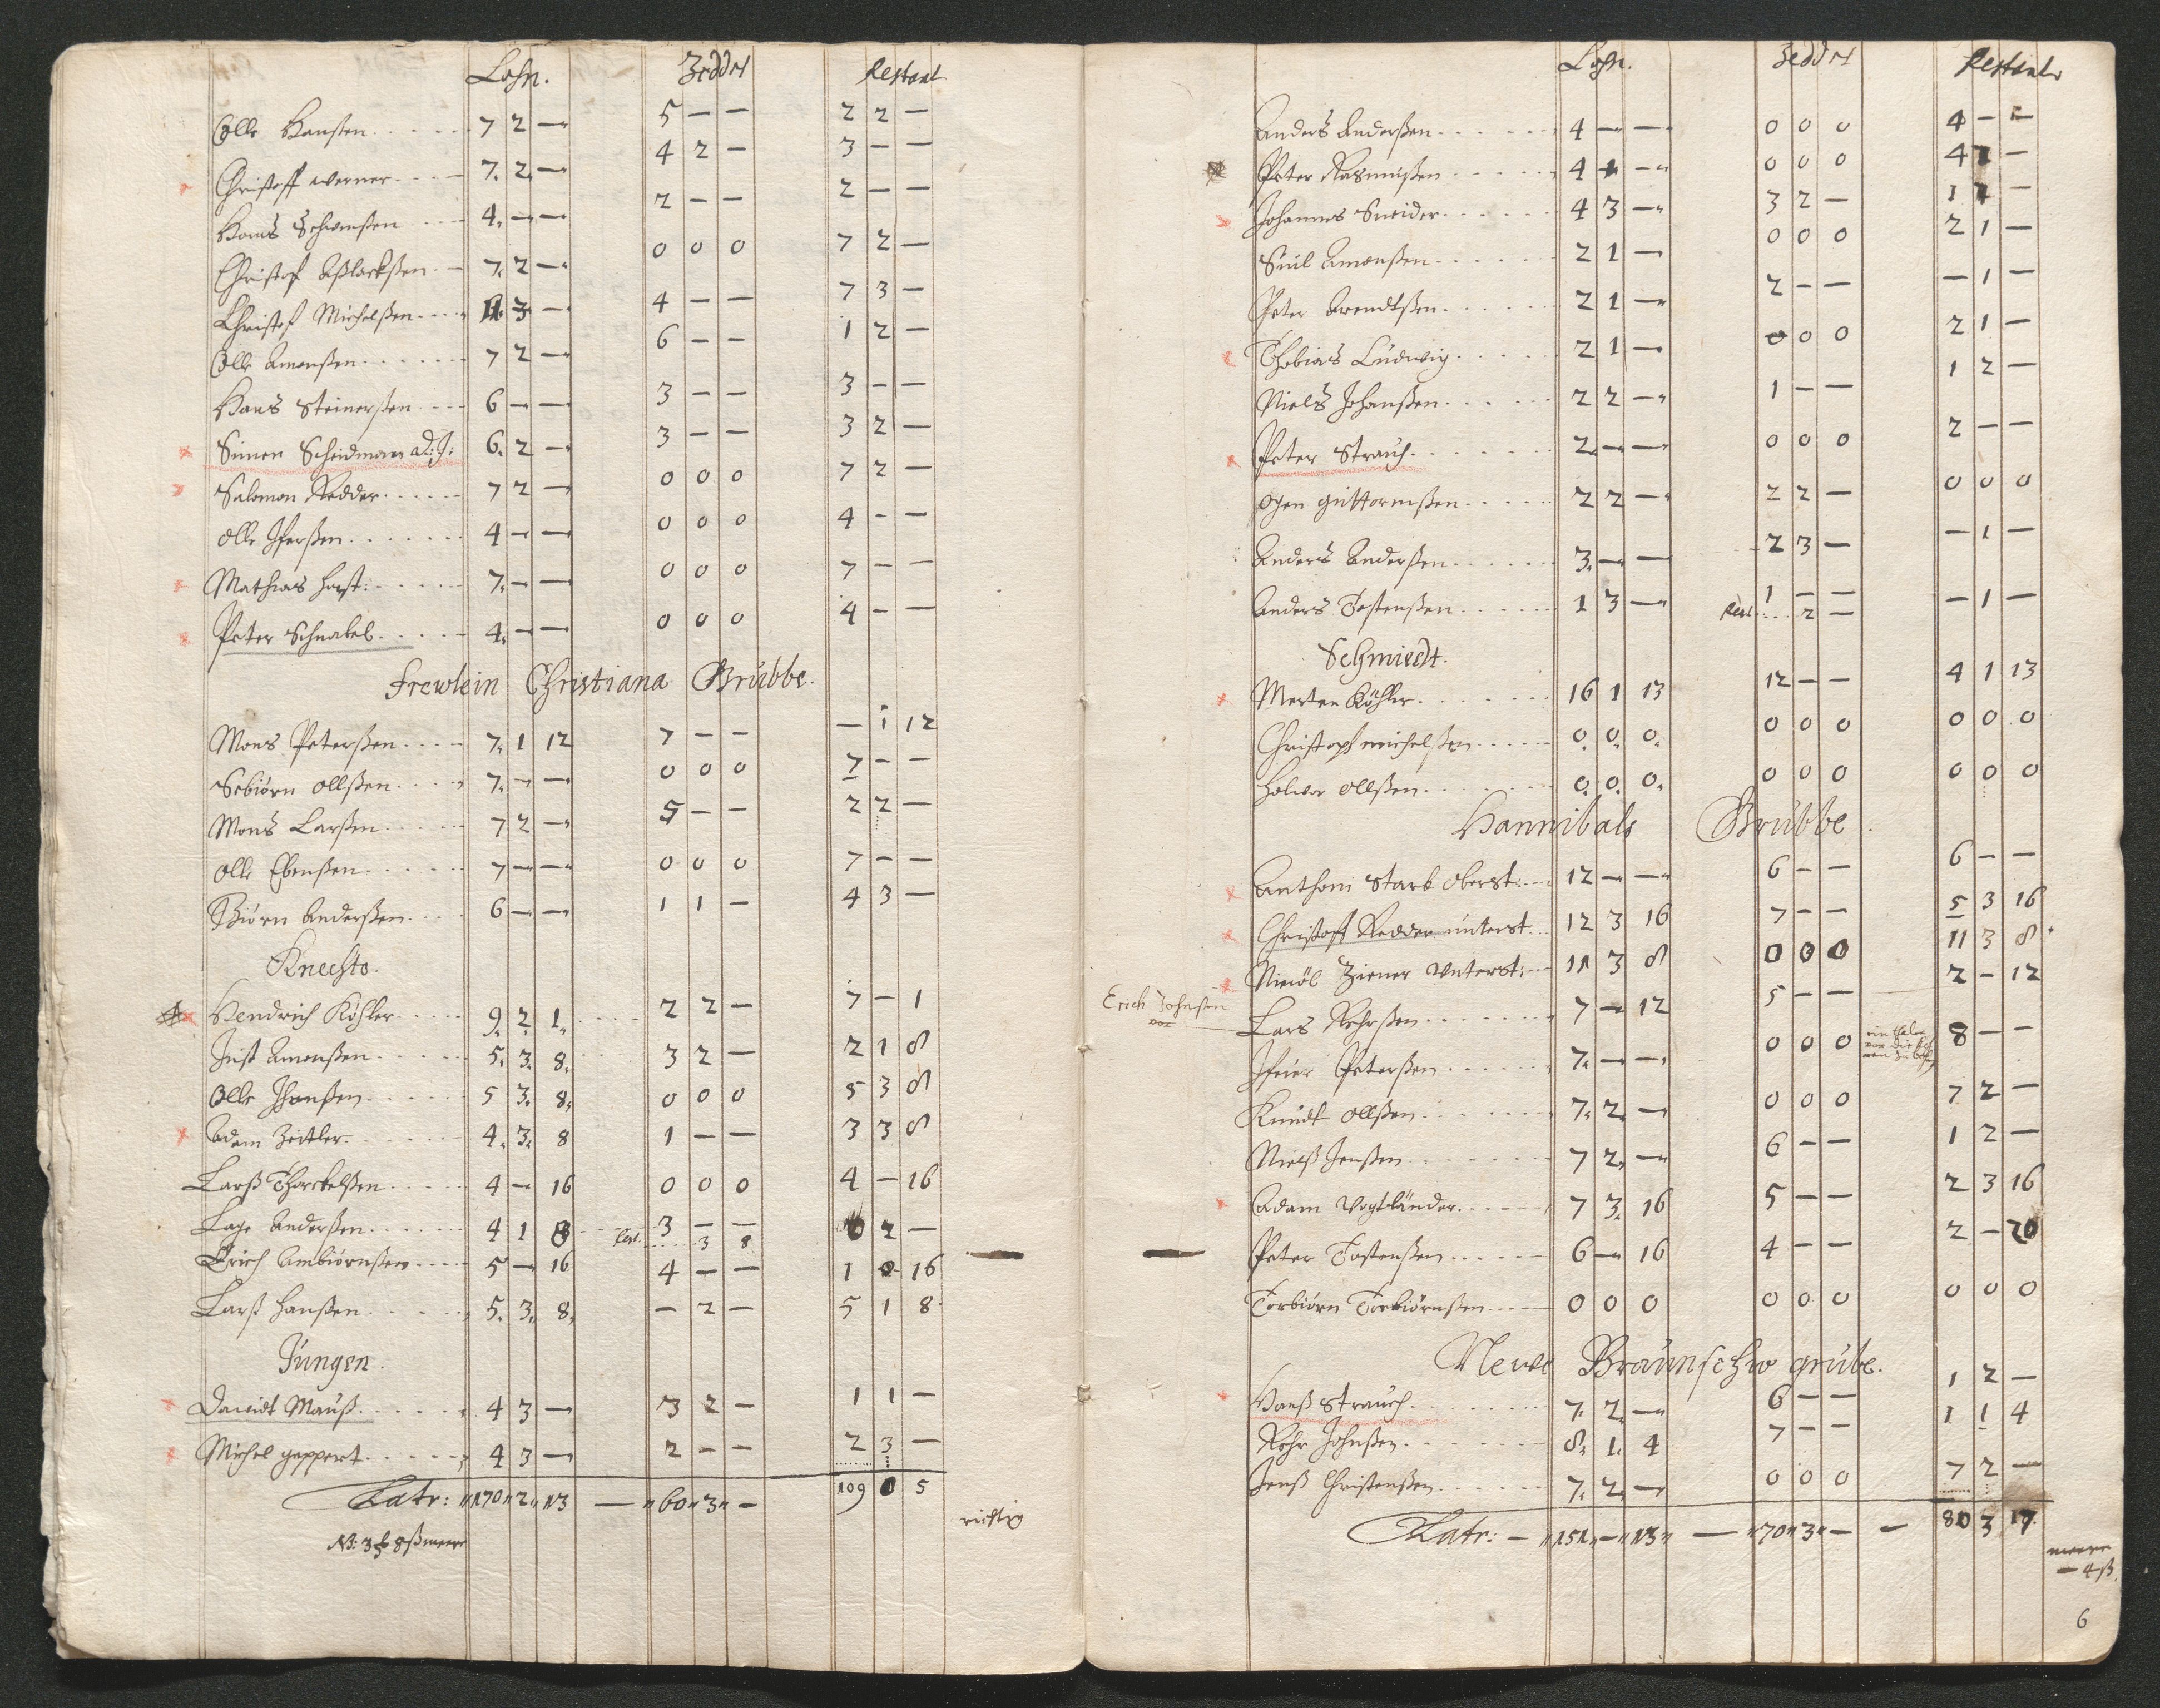 Lohn. Zeddel Restant
Olle Hanßen 7 2 — 5 — — 2 2 —
Christoff Werner 7. 2. — 4 2 — 3 — —
Hans Schwenßen 4. — — 2 — — 2 — —
Christof Aßlackßen 7. 2 — 0 0 0 7 2 —
Christof Michelßen 11 3 — 4 — — 7 3 —
Olle Amonßen 7 2 — 6 — — 1 2 —
Hans Steinerßen 6 — — 3 — — 3 — —
Simen Scheidman 6. 2 — 3 — — 3 2 —
Salomon Redder 7 2 — 0 0 0 7 2 —
Olle Iferßen 4 — — 0 0 0 4 — —
Mathias Horst: 7. — — 0 0 0 7 — —
Peter Schnabel 4. — — 0 0 0 4 — —
Frewlein Christiana Grubbe.
Mons Peterßen 7. 1 12 7 — — — 1 12
Sebiörn Ollßen 7. — — 0 0 0 7 — —
Mons Larßen 7 2 — 5 — — 2 2 —
Olle Ebenßen 7 — — 0 0 0 7 — —
Biörn Anderßen 6 — — 1 1 — 4 3 —
Knechte.
Hendrich Köhler 9. 2. 1. 2 2 — 7 — 1
Just Amonßen 5. 3. 8. 3 2 — 2 1 8
Olle Jhonßen 5 3. 8. 0 0 0 5 3 8
Adam Zeitler 4. 3. 8 1 — — 3 3 8
Larß Thorckelßen 4 — 16 0 0 0 4 — 16
Lage Anderßen 4 1 8 Rest. 3 — — 0 2 —
3 8
Erich Ambiörnßen 5 — 16 4 — — 1 0 16
Larß Hanßen 5. 3. 8. — 2 — 5 1 8
Jungen.
Dawidt Mauß 4 3 — 3 2 — 1 1 —
Michel Geppert 4 3 — 2 — — 2 3 —
Latr: 170 2 13 — 60 3 — 109 0 5
richtig
NB: 3 8 ß meere
Lohn. Zeddel Restant
Anders Anderßen 4 — — 0 0 0 4 — —
Peter Rasmußen 4 1 — 0 0 0 4 1 —
Johannes Sneider 4 3 — 3 2 — 1 1 —
Siul Amonßen 2 1 — 0 0 0 2 1 —
Peter Arendtßen 2 1 — 2 — — — 1 —
Thobias Ludwig 2 1 — 0 0 0 2 1 —
Niels Johanßen 2 2 — 1 — — 1 2 —
Peter Strauch 2. — — 0 0 0 2 — —
Ogen Guttormßen 2 2 — 2 2 — 0 0 0
Anders Anderßen 3. — — 2 3 — — 1 —
Anders Tostenßen 1 3 — 1 — — — 1 —
Rest. 2 —
Schmiedt.
Merten Köhler 16 1 13 12 — — 4 1 13
Christoph Michelßen 0. 0. 0. 0 0 0 0 0 0
Halvor Ollßen 0. 0. 0. 0 0 0 0 0 0
Hannibals Grubbe
Anthoni Stark Oberst: 12 — — 6 — — 6 — —
Christoff Redder unterst 12 3 16 7 — — 5 3 16
Nicöl Ziener Unterst: 11 3 8 0 0 0 11 3 8
Erich Johnßen
Lars Rohrßen 7 — 12 5 — — 2 — 12
Ifeuer Peterßen 7. — — 0 0 0 ein thaler 8 — —
Knudt Ollßen 7. 2. — 0 0 0 7 2 —
Nielß Jenßen 7 2. — 6 — — 1 2 —
Adam Vogtländer 7 3. 16 5 — — 2 3 16
Peter Tostenßen 6 — 16 4 — — 2 — 20
Torbiörn Torbiörnßen 0 0 0 0 0 0 0 0 0
Newe Braunschw grube.
Hanß Strauch 7. 2. — 6 — — 1 2 —
Rohr Johnßen 8. 1. 4 7 — — 1 1 4
Jenß Christenßen 7. 2. — 0 0 0 7 2 —
Latr: — 151 — 13 — 70 3 — — 80 3 17
meere
— 4 ß.
6